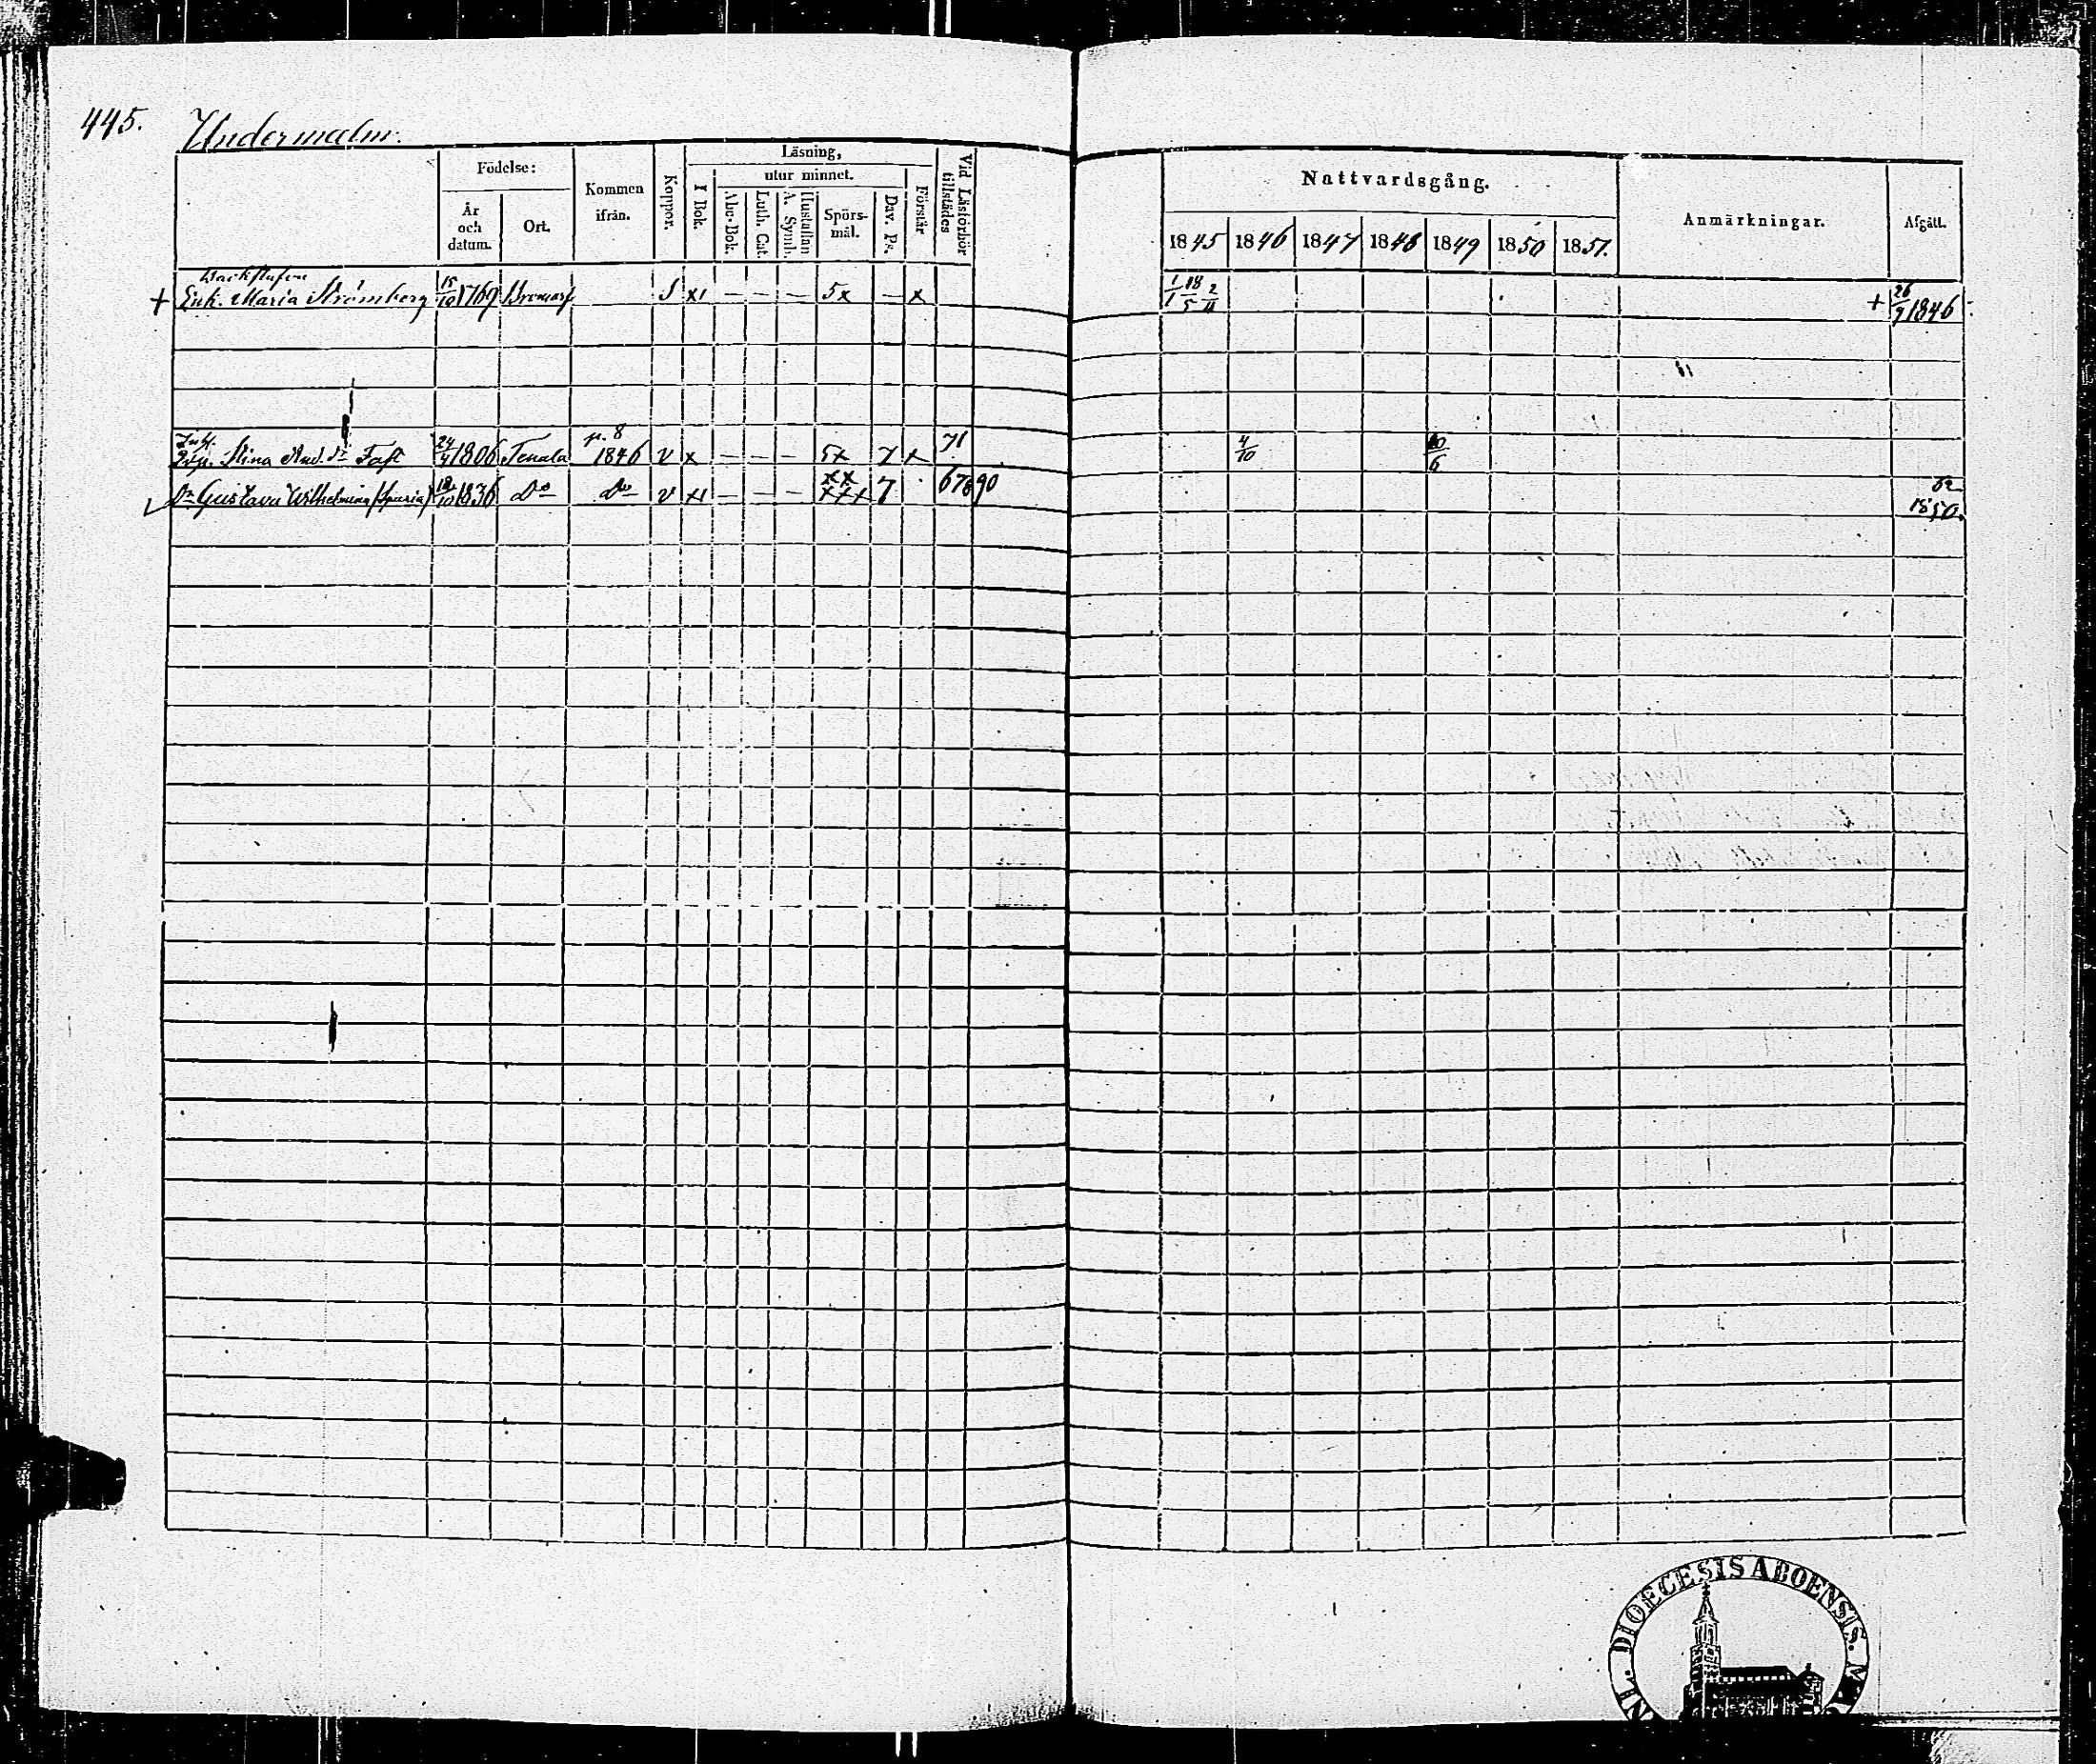 445. Undermalm.
Födelse:
År och datum.
Ort.
Kommen ifrån.
Koppor.
Läsning,
I Bok.
utur minnet.
Abc-Bok.
Luth. Cat.
Hustaflan A. Symb.
Spörs-mål.
Dav. Ps.
Förstår
Vid Läsförhör tillstädes
Nattvardsgång.
1845 1846 1847 1848 1849 1850 1851.
Anmärkningar.
Afgått.
Backstufun
+ Enk. Maria Strömberg 15/10 1769 Bromarf S x1 — — — 5x — x 1/1 18/5 2/11 + 26/9 1846
Pig. Stina And. dr Fast 24/4 1806 Tenala p. 8 1846 v x — — — 5x 7 x 71 4/10 10/6
Dr Gustava Wilhelmina (Spuria) 18/10 1836 do do v x1 — — — xx xxx 7 67890 52 1850.
DIOECESIS ABOENSIS.